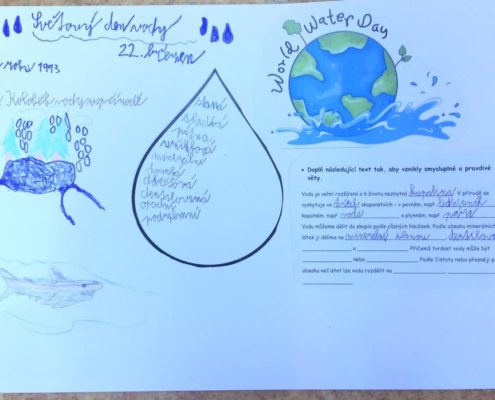 Světový den vody
22. březen
roku 1993
Koloběh vody v přírodě
slaná
sladká
pitná
minerální
destilovaná
podzemní
World Water Day
• Doplň následující text tak, aby vznikly smysluplné a pravdivé
věty.
Voda je velmi rozšířená a k životu nezbytná kapalina v přírodě se
vyskytuje ve skupenstvích – v pevném, např.
kapalném, např. voda a plynném, např. pára
Vodu můžeme dělit do skupin podle různých hledisek. Podle obsahu minerálních
látek ji dělíme na minerální slanou
a Příčemž tvrdost vody může být
nebo Podle čistoty nebo přesněji p
obsahu nečistot lze vodu rozdělit na